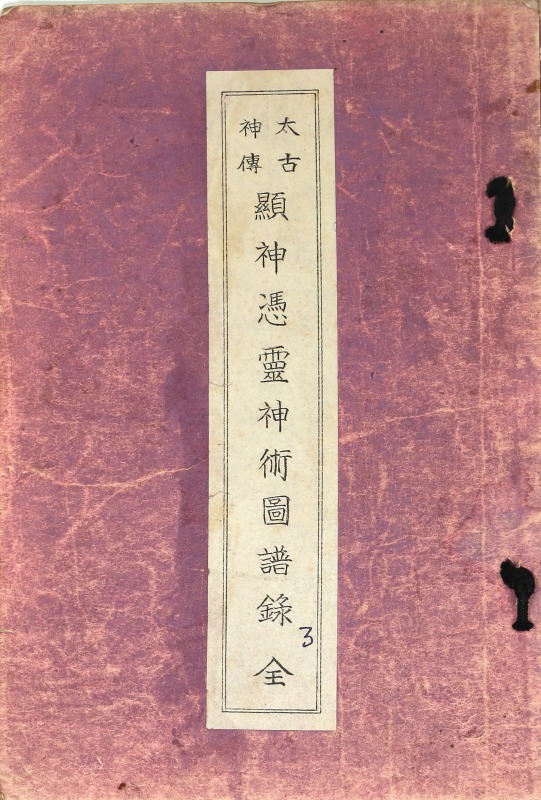 太古
神傳
顯神憑靈神術圖譜錄 全
3